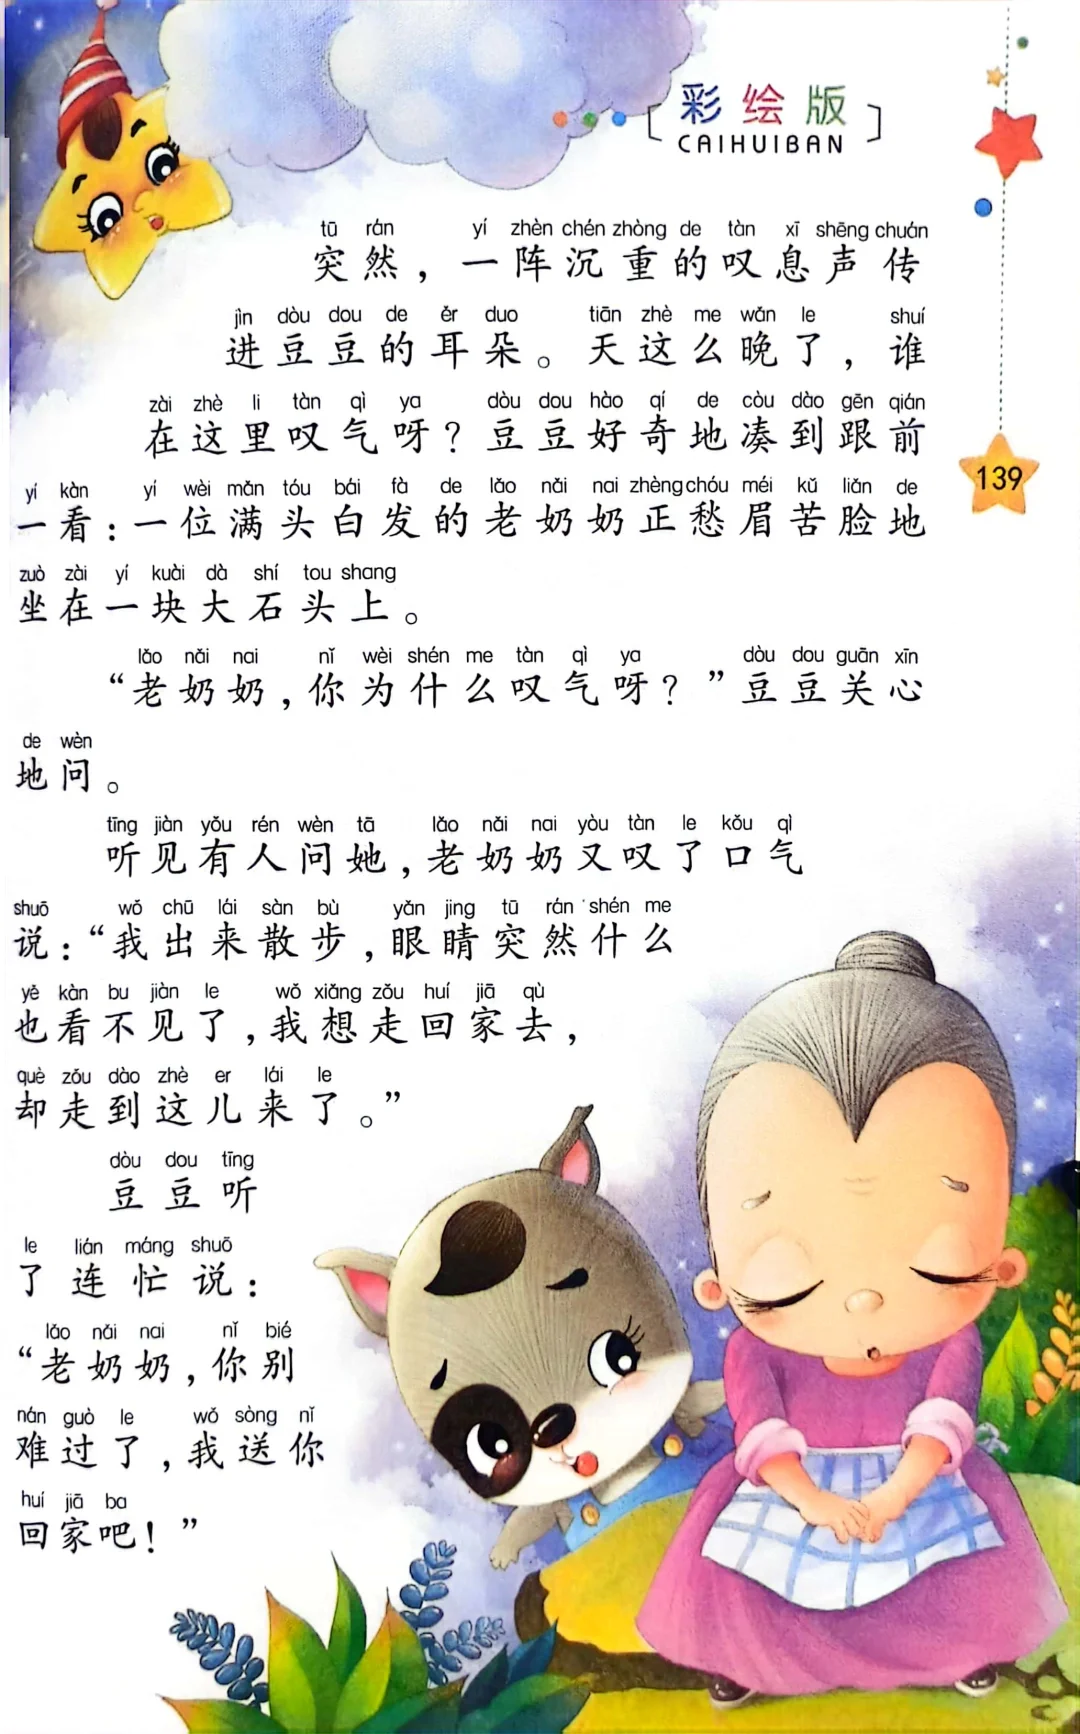 彩绘版
CAIHUIBAN
tū rán yí zhèn chén zhòng de tàn xī shēng chuán
突然，一阵沉重的叹息声传
jìn dòu dou de ěr duo tiān zhè me wǎn le shuí
进豆豆的耳朵。天这么晚了，谁
zài zhè li tàn qì ya dòu dou hào qí de còu dào gēn qián
在这里叹气呀？豆豆好奇地凑到跟前
139
yí kàn yí wèi mǎn tóu bái fà de lǎo nǎi nai zhèng chóu méi kǔ liǎn de
一看：一位满头白发的老奶奶正愁眉苦脸地
zuò zài yí kuài dà shí tou shang
坐在一块大石头上。
lǎo nǎi nai nǐ wèi shén me tàn qì ya dòu dou guān xīn
“老奶奶，你为什么叹气呀？”豆豆关心
de wèn
地问。
tīng jiàn yǒu rén wèn tā lǎo nǎi nai yòu tàn le kǒu qì
听见有人问她，老奶奶又叹了口气
shuō wǒ chū lái sàn bù yǎn jing tū rán shén me
说：“我出来散步，眼睛突然什么
yě kàn bu jiàn le wǒ xiǎng zǒu huí jiā qù
也看不见了，我想走回家去，
què zǒu dào zhè er lái le
却走到这儿来了。”
dòu dou tīng
豆豆听
le lián máng shuō
了连忙说：
lǎo nǎi nai nǐ bié
“老奶奶，你别
nán guò le wǒ sòng nǐ
难过了，我送你
huí jiā ba
回家吧！”